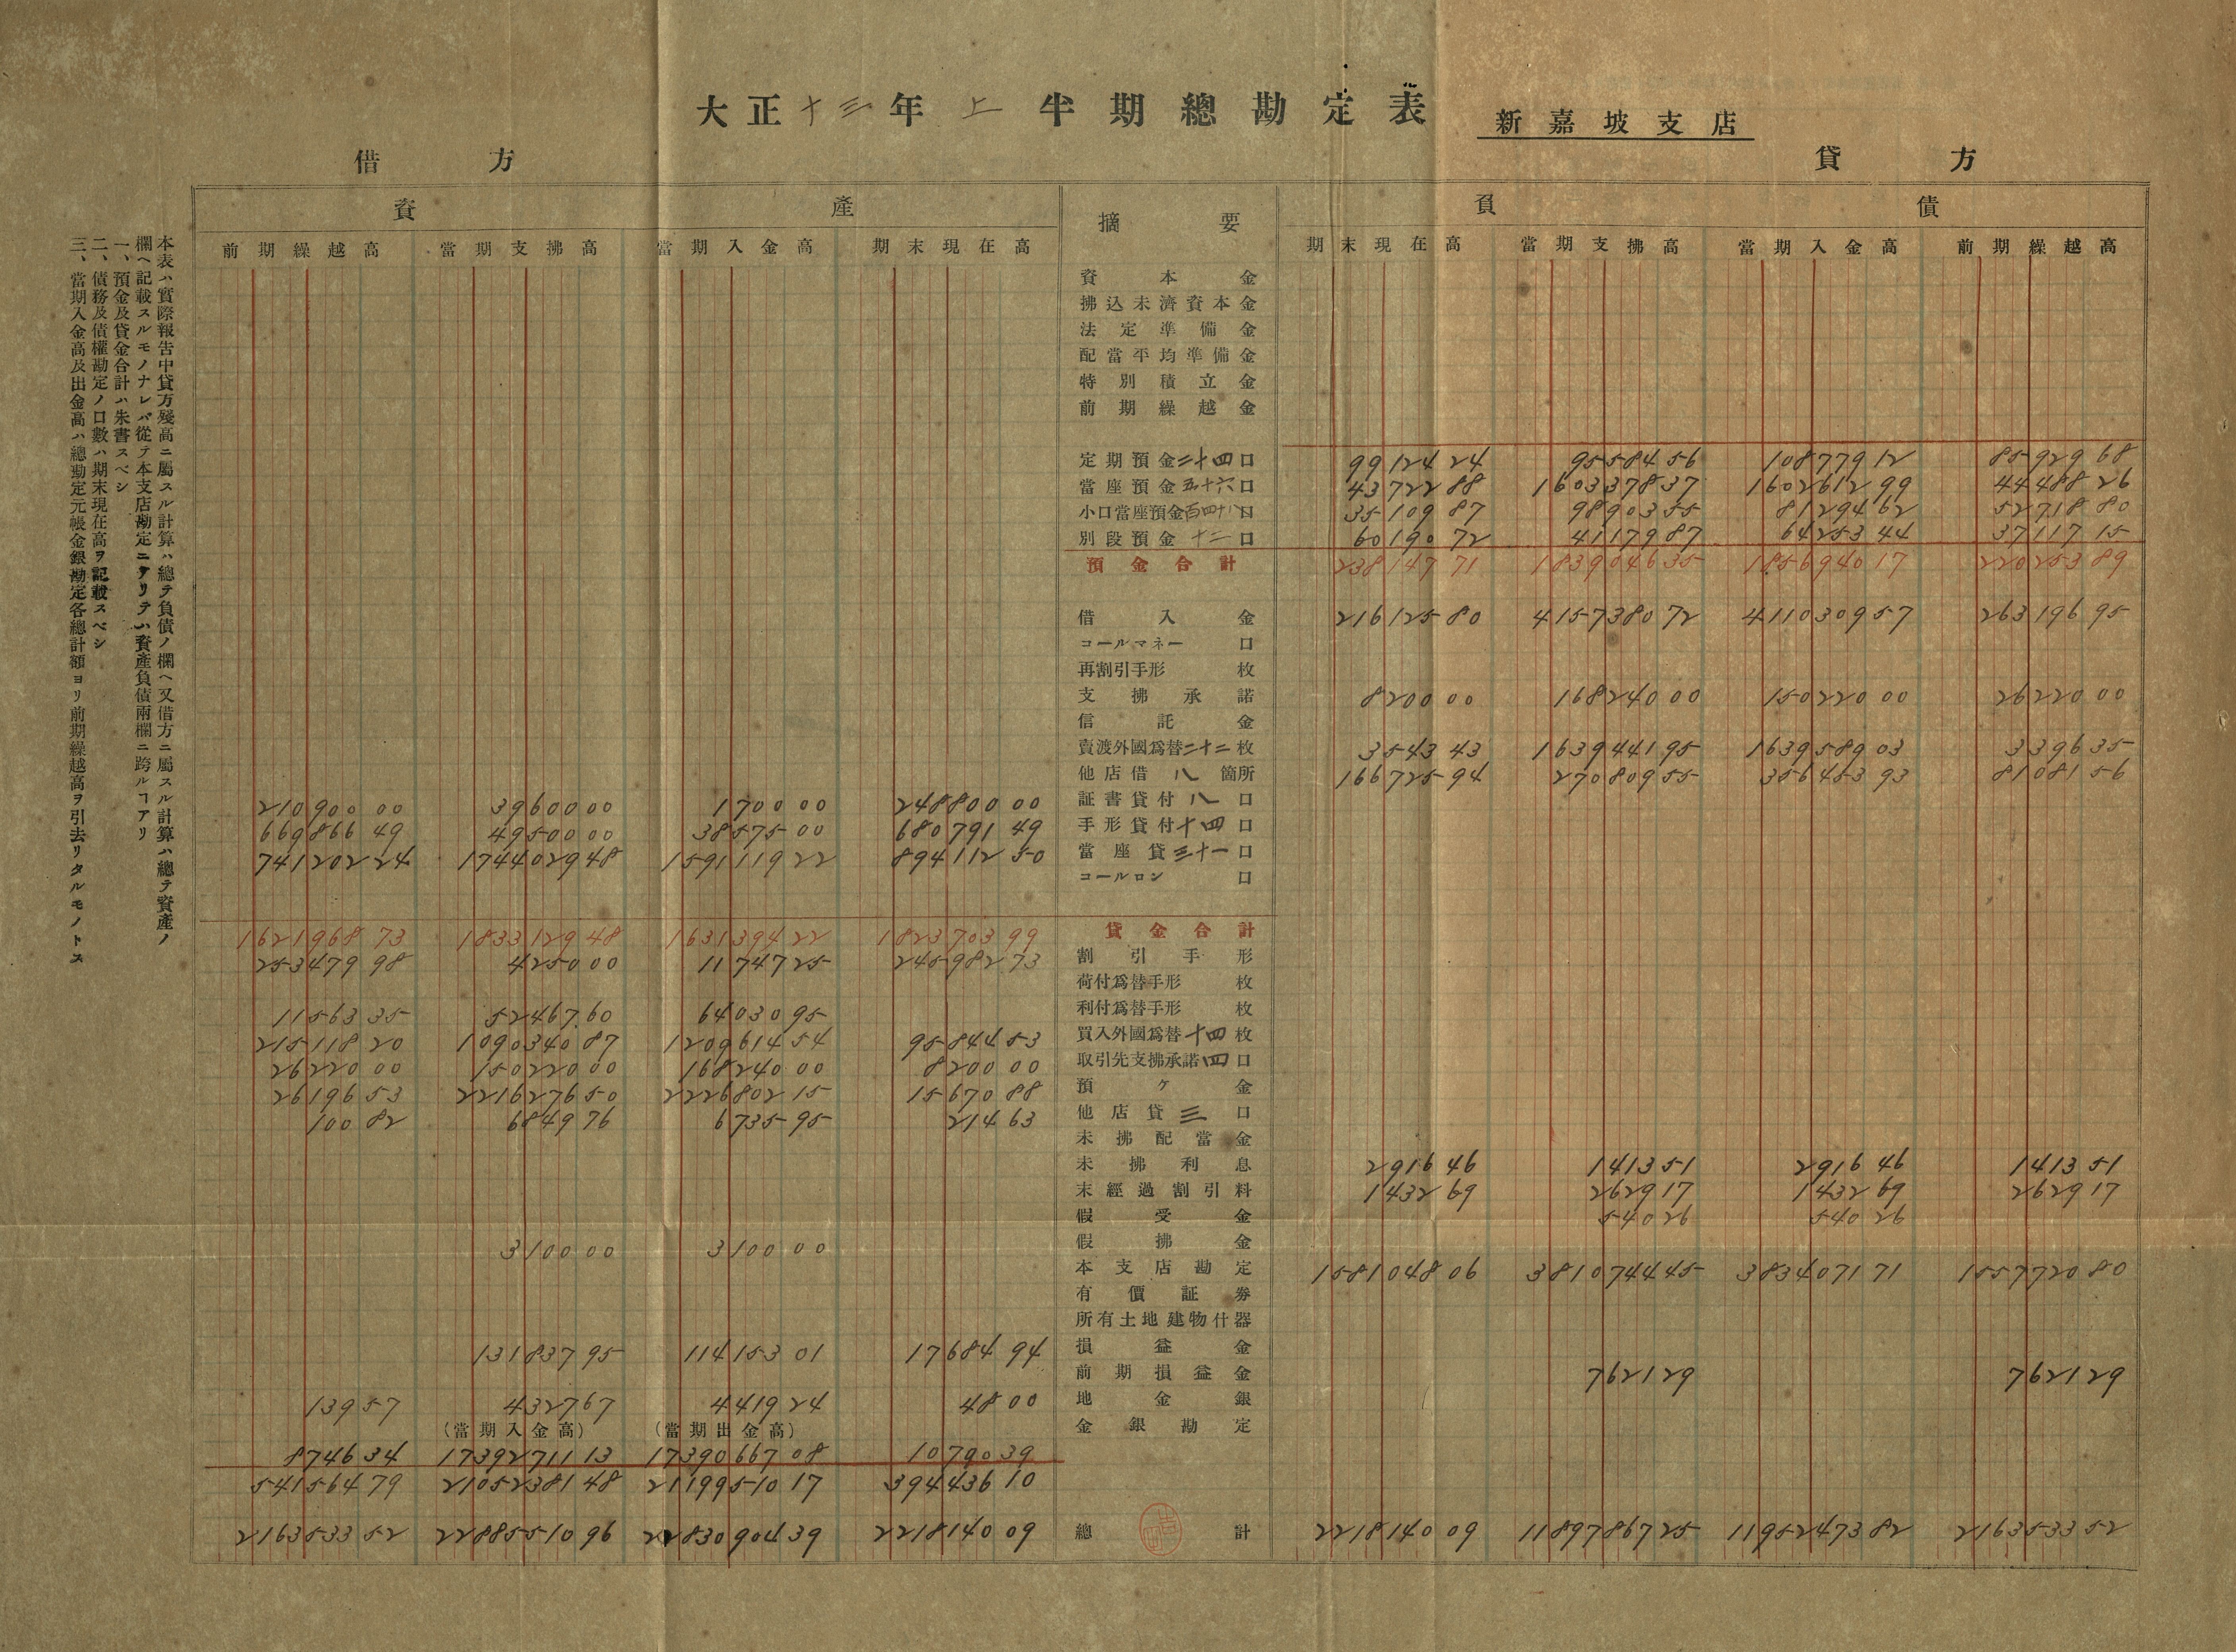 大正十三年上半期總勘定表 新嘉坡支店
借方 貸方
資產 摘要 負債
前期繰越高 當期支拂高 當期入金高 期末現在高 期末現在高 當期支拂高 當期入金高 前期繰越高
資本金
拂込未濟資本金
法定準備金
配當平均準備金
特別積立金
前期繰越金
定期預金二十四口 99124 24 95584 56 108779 12 85929 68
當座預金五十六口 43722 88 1603378 37 1602612 99 44488 26
小口當座預金百四十八口 35109 87 98903 55 81294 62 52718 80
別段預金十二口 60190 72 41179 87 64253 44 37117 15
預金合計 238147 71 1839046 35 1856940 17 220253 89
借入金 216125 80 4157380 72 4110309 57 263196 95
コールマネー口
再割引手形枚
支拂承諾 8200 00 168240 00 150220 00 26220 00
信託金
賣渡外國爲替二十二枚 3543 43 1639441 95 1639589 03 3396 35
他店借八箇所 166725 94 270809 55 356453 93 81081 56
210900 00 39600 00 1700 00 248800 00 証書貸付八口
669866 49 49500 00 38575 00 680791 49 手形貸付十四口
741202 24 1744029 48 1591119 22 894112 50 當座貸三十一口
コールロン口
1621968 73 1833129 48 1631394 22 1823703 99 貸金合計
253479 98 4250 00 11747 25 245982 73 割引手形
荷付爲替手形枚
11563 35 52467 60 64030 95 利付爲替手形枚
215118 20 1090340 87 1209614 54 95844 53 買入外國爲替十四枚
26220 00 150220 00 168240 00 8200 00 取引先支拂承諾四口
26196 53 2216276 50 2226802 15 15670 88 預ケ金
100 82 6849 76 6735 95 214 63 他店貸三口
未拂配當金
未拂利息 2916 46 1413 51 2916 46 1413 51
未經過割引料 1432 69 2629 17 1432 69 2629 17
假受金 540 26 540 26
3100 00 3100 00 假拂金
本支店勘定 1581048 06 3810744 45 3834071 71 1557720 80
有價証券
所有土地建物什器
131837 95 114153 01 17684 94 損益金
前期損益金 7621 29 7621 29
139 57 4327 67 4419 24 48 00 地金銀
(當期入金高) (當期出金高) 金銀勘定
8746 34 17392711 13 17390667 08 10790 39
541564 79 21052381 48 21199510 17 394436 10
2163533 52 22885510 96 22830904 39 2218140 09 總計 2218140 09 11897867 25 11952473 82 2163533 52
本表ハ實際報告中貸方殘高ニ屬スル計算ハ總テ負債ノ欄ヘ又借方ニ屬スル計算ハ總テ資產ノ
欄ヘ記載スルモノナレバ從テ本支店勘定ニアリテハ資產負債兩欄ニ跨ルヿアリ
一、預金及貸金合計ハ朱書スベシ
二、債務及債權勘定ノ口數ハ期末現在高ヲ記載スベシ
三、當期入金高及出金高ハ總勘定元帳金銀勘定各總計額ヨリ前期繰越高ヲ引去リタルモノトス